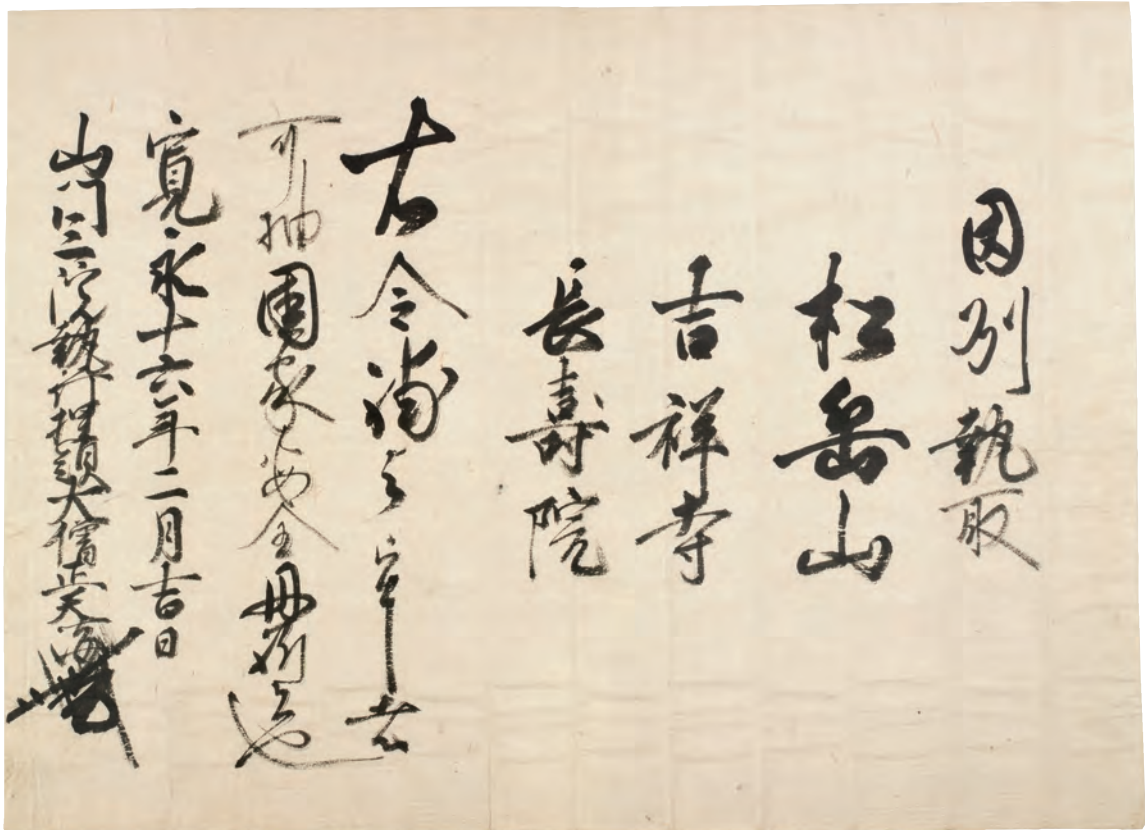 因州執取
松岳山
吉祥寺
長壽院
右令補之者
可抽國家安全丹祈也
寛永十六年二月吉日
山門三院執行探題大僧正天海